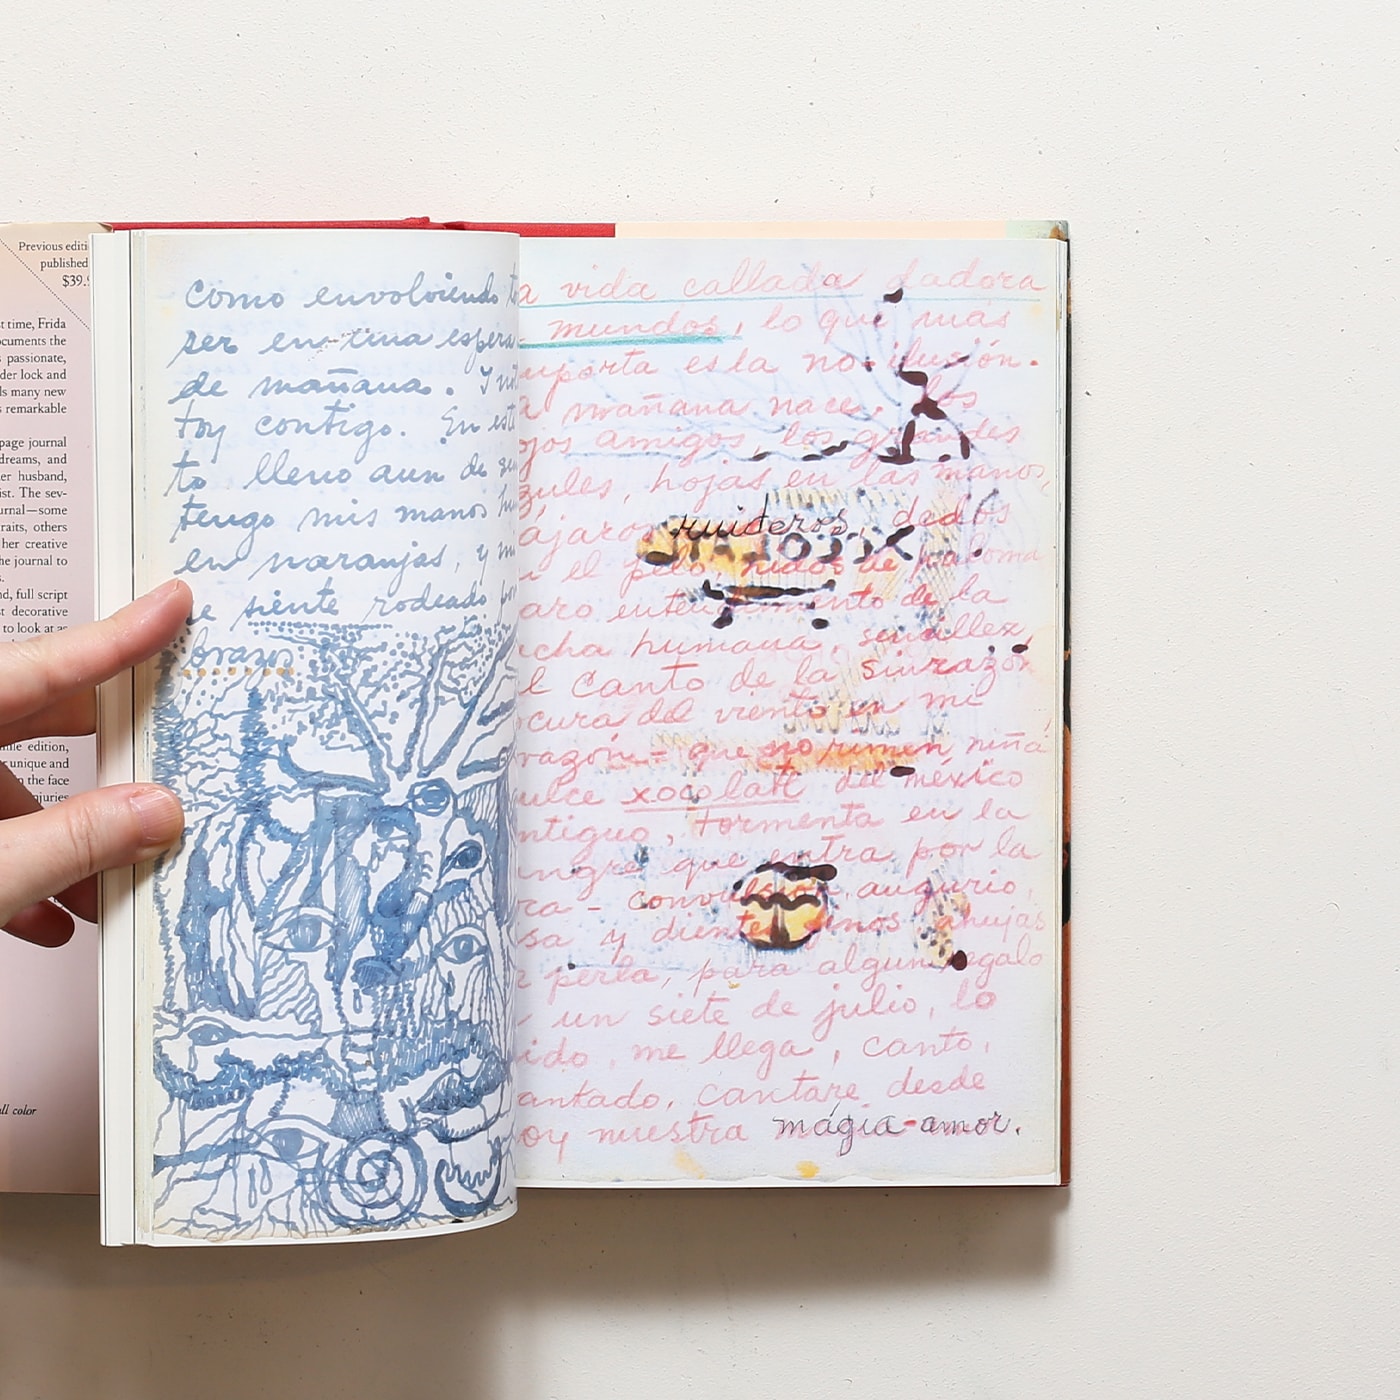 Previous editi
published
$39.9
t time, Frida
ocuments the
passionate,
der lock and
ls many new
s remarkable
page journal
dreams, and
er husband,
ist. The sev-
urnal—some
raits, others
her creative
he journal to
s.
nd, full script
st decorative
to look at as
edition,
unique and
n the face
njuries
ull color
como envolviendo to
ser en una espera
de mañana. Y
toy contigo. En est
to lleno aun de sen
tengo mis manos hun
en naranjas, y mi
se siente rodeado por
brazos
a vida callada dadora
mundos, lo que más
mporta es la no-ilusión.
a mañana nace, los
ojos amigos, los grandes
zules, hojas en las manos,
ájaros ruideros, dedos
n el pelo, nidos de paloma
aro entendimiento de la
ucha humana, sencillez,
l canto de la sinrazón
ocura del viento en mi
razón = que no rimen niña
ulce xocolatl del méxico
ntiguo, tormenta en la
angre que entra por la
ca - convulsión, augurio,
sa y dientes finos ahujas
e perla, para algun regalo
un siete de julio, lo
ido, me llega, canto,
antado, cantare desde
oy nuestra mágia-amor.